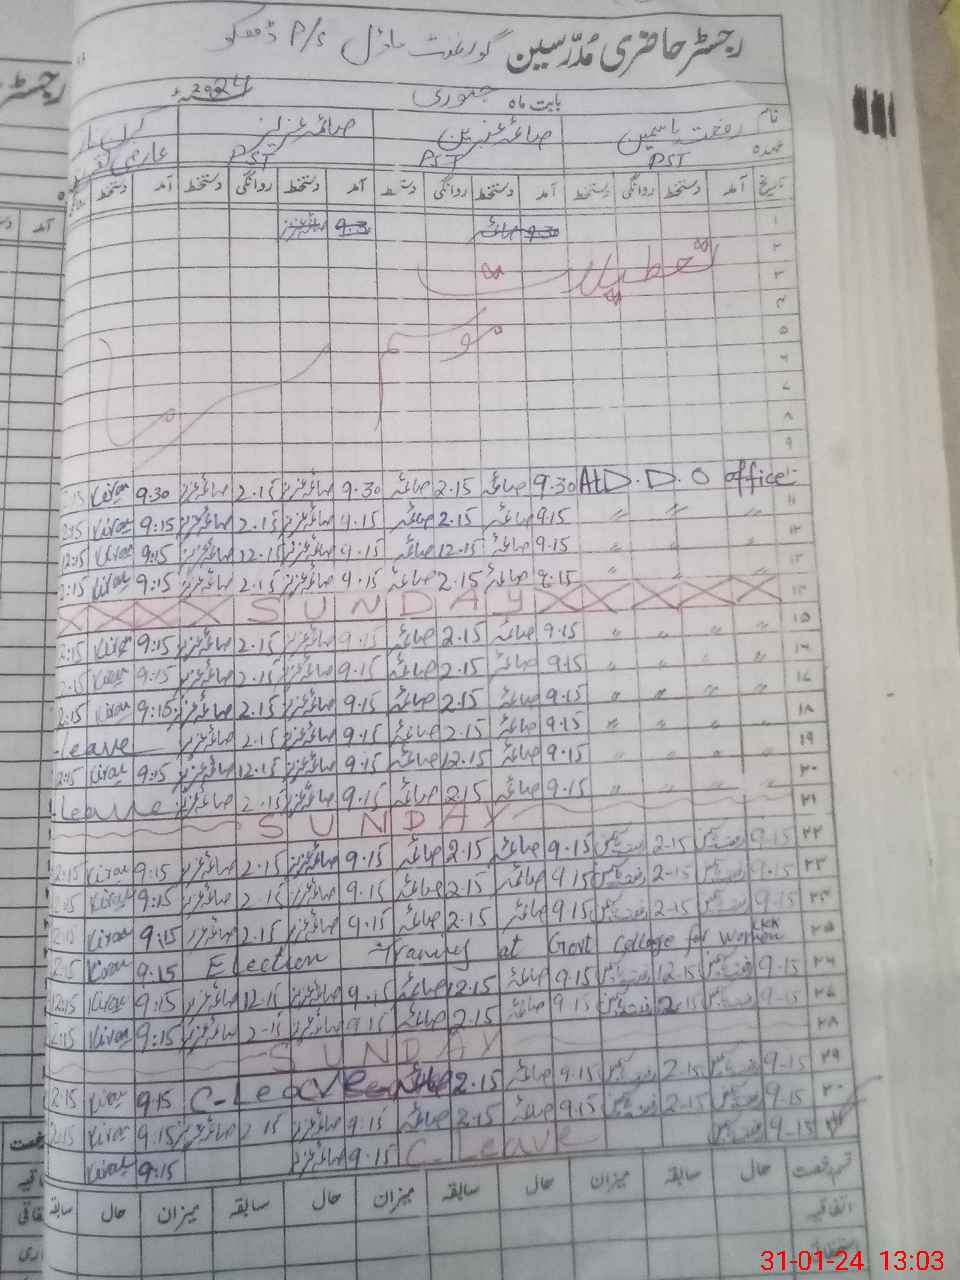 رجسٹر حاضری مُدرّسین گورنمنٹ ماڈل P/S
بابت ماہ جنوری 2024ء
نام رفعت یاسمین صائمہ عنبرین صائمہ عزیز کرن
عہدہ PST PST PST عارضی
تاریخ آمد دستخط روانگی دستخط آمد دستخط روانگی دستخط آمد دستخط روانگی دستخط آمد دستخط روانگی
۱ 9.30 صائمہ 9.30 صائمہ عزیز
۲ تعطیلات
۳
۴
۵ موسم
۶
۷ سرما
۸
۹
At D.D.O office 9.30 صائمہ 2.15 صائمہ 9.30 صائمہ عزیز 2.15 صائمہ عزیز 9.30 Kiran
۱۱ " " " 9.15 صائمہ 2.15 صائمہ 9.15 صائمہ عزیز 2.15 صائمہ عزیز 9:15 Kiran 2:15
۱۲ " " " 9.15 صائمہ 12.15 صائمہ 9.15 صائمہ عزیز 12.15 صائمہ عزیز 9:15 Kiran 12:15
۱۳ " " " 9.15 صائمہ 2.15 صائمہ 9.15 صائمہ عزیز 2.15 صائمہ عزیز 9:15 Kiran 2:15
SUNDAY
۱۵ " " " " 9.15 صائمہ 2.15 صائمہ 9.15 صائمہ عزیز 2.15 صائمہ عزیز 9:15 Kiran 2:15
۱۶ " " " " 9.15 صائمہ 2.15 صائمہ 9.15 صائمہ عزیز 2.15 صائمہ عزیز 9:15 Kiran 2.15
۱۷ " " " " 9.15 صائمہ 2.15 صائمہ 9.15 صائمہ عزیز 2.15 صائمہ عزیز 9:15 Kiran 2:15
۱۸ " " " " 9.15 صائمہ 2.15 صائمہ 9.15 صائمہ عزیز 2.15 صائمہ عزیز Leave
۱۹ " " " " 9.15 صائمہ 12.15 صائمہ 9.15 صائمہ عزیز 12.15 صائمہ عزیز 9:15 Kiran 12:15
۲۰ " " " " 9.15 صائمہ 2.15 صائمہ 9.15 صائمہ عزیز 2.15 صائمہ عزیز Leave
۲۱ SUNDAY
۲۲ 9-15 2-15 9.15 صائمہ 2.15 صائمہ 9.15 صائمہ عزیز 2.15 صائمہ عزیز 9:15 Kiran 2:15
۲۳ 9-15 2-15 9.15 صائمہ 2.15 صائمہ 9.15 صائمہ عزیز 2.15 صائمہ عزیز 9:15 Kiran 2:15
9-15 2-15 9.15 صائمہ 2.15 صائمہ 9.15 صائمہ عزیز 2.15 صائمہ عزیز 9:15 Kiran
۲۵ Election Traning at Govt College for Women 9:15 Kiran 2:15
۲۶ 9-15 12-15 9.15 صائمہ 12.15 صائمہ 9.15 صائمہ عزیز 12.15 صائمہ عزیز 9:15 Kiran 12:15
9-15 2-15 9.15 صائمہ 2.15 صائمہ 9.15 صائمہ عزیز 2-15 صائمہ عزیز 9:15 Kiran 2:15
۲۸ SUNDAY
۲۹ 9-15 2-15 9.15 صائمہ 2.15 صائمہ C-Leave 9:15 Kiran 2:15
۳۰ 9-15 2-15 9.15 صائمہ 2.15 صائمہ 9.15 صائمہ عزیز 2-15 صائمہ عزیز 9:15 Kiran 2:15
9-15 C Leave 9.15 صائمہ عزیز 9:15 Kiran
قسم رخصت حال سابقہ میزان حال سابقہ میزان حال سابقہ میزان حال سابقہ
اتفاقیہ
31-01-24 13:03